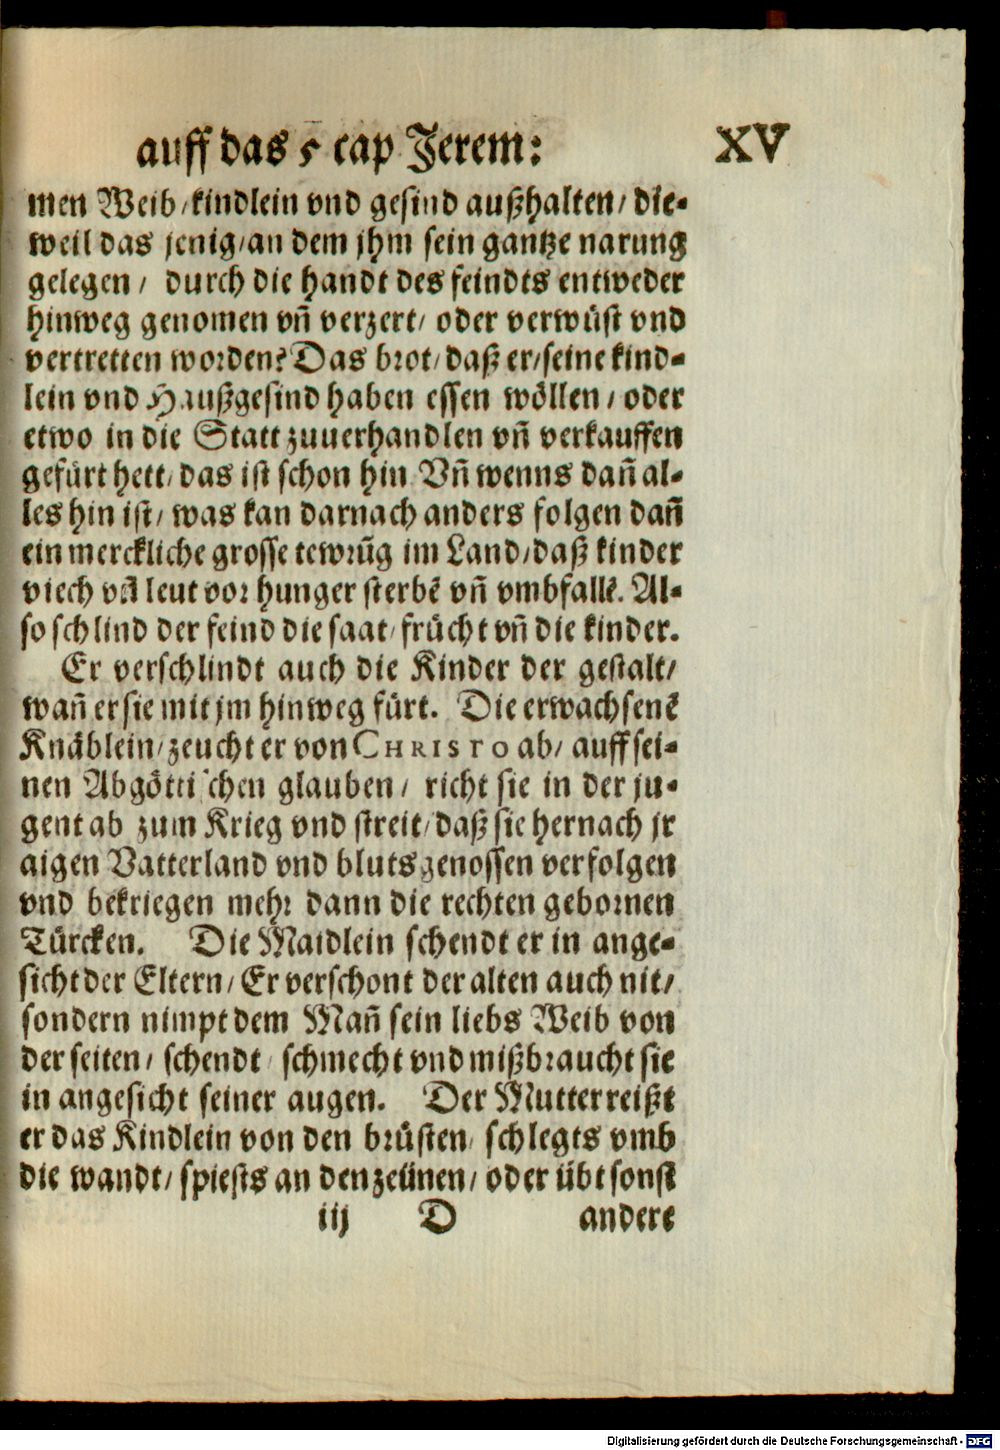 auff das 5 cap Jerem: XV
men Weib/kindlein vnd gesind außhalten/ die-
weil das jenig/an dem jhm sein gantze narung
gelegen/ durch die handt des feindts entweder
hinweg genomen vñ verzert/ oder verwüst vnd
vertretten worden? Das brot/ daß er/seine kind-
lein vnd Haußgesind haben essen wöllen/ oder
etwo in die Statt zuuerhandlen vñ verkauffen
gefürt hett/ das ist schon hin Vñ wenns dañ al-
les hin ist/ was kan darnach anders folgen dañ
ein merckliche grosse tewrũg im Land/daß kinder
viech vñ leut vor hunger sterbẽ vñ vmbfallẽ. Al-
so schlind der feind die saat/ frücht vñ die kinder.
Er verschlindt auch die Kinder der gestalt/
wañ er sie mit jm hinweg fürt. Die erwachsenẽ
Knäblein/zeucht er von CHRISTO ab/ auff sei-
nen Abgöttischen glauben/ richt sie in der ju-
gent ab zum Krieg vnd streit/ daß sie hernach jr
aigen Vatterland vnd blutsgenossen verfolgen
vnd bekriegen mehr dann die rechten gebornen
Türcken. Die Maidlein schendt er in ange-
sicht der Eltern/ Er verschont der alten auch nit/
sondern nimpt dem Mañ sein liebs Weib von
der seiten/ schendt/ schmecht vnd mißbraucht sie
in angesicht seiner augen. Der Mutter reißt
er das Kindlein von den brüsten/ schlegts vmb
die wandt/ spiests an den zeünen/ oder übt sonst
iij D andere
Digitalisierung gefördert durch die Deutsche Forschungsgemeinschaft - DFG